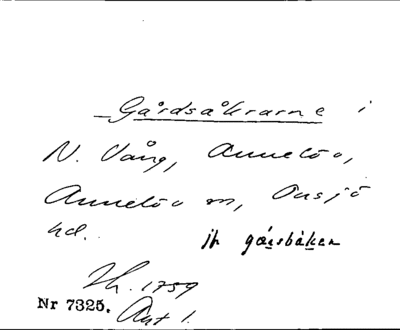 Gårdsåkrarne i
N. Vång, Annelöv,
Annelöv sn, Onsjö
hd. jfr gǻrsbåken
Zh. 1759
Akt 1.
Nr 7325.